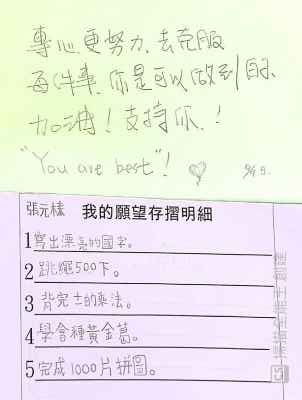 專心更努力，去克服
每件事，你是可以做到的、
加油！支持你！
"You are best"！
張元棲
我的願望存摺明細
1 寫出漂亮的國字。
2 跳繩500下。
3 背完士的乘法。
4 學會種黃金葛。
5 完成1000片拼圖。